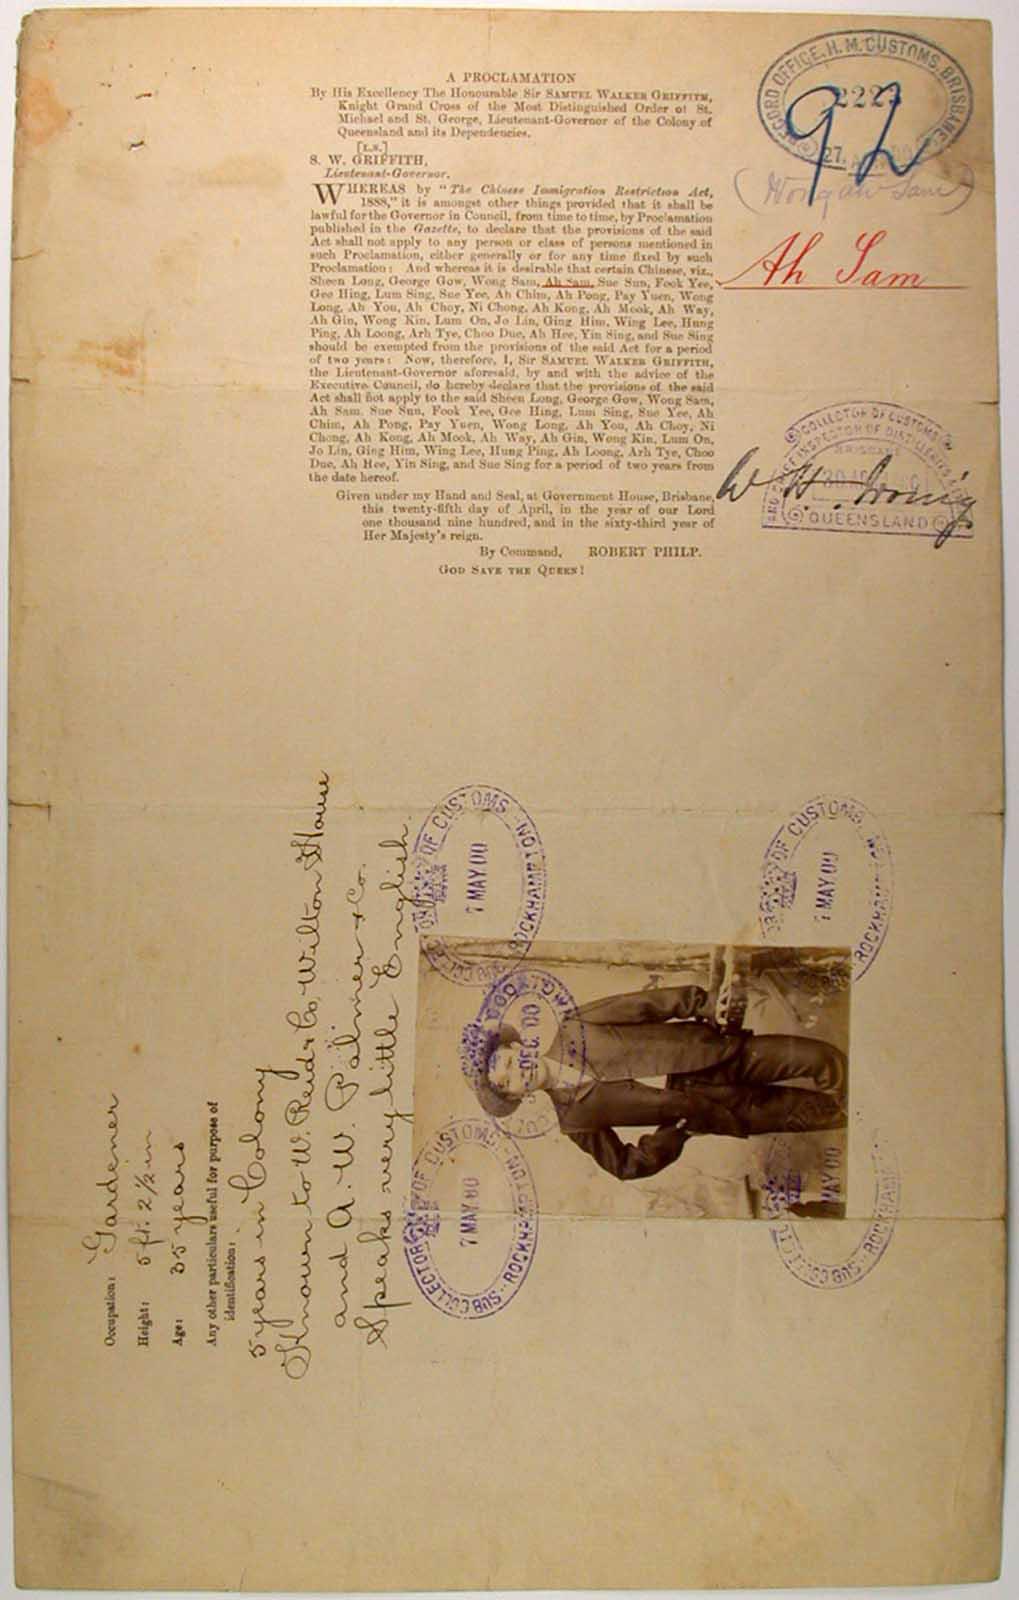 A PROCLAMATION
By His Excellency The Honourable Sir SAMUEL WALKER GRIFFITH,
Knight Grand Cross of the Most Distinguished Order of St.
Michael and St. George, Lieutenant-Governor of the Colony of
Queensland and its Dependencies.
[L.S.]
S. W. GRIFFITH,
Lieutenant-Governor.
WHEREAS by "The Chinese Immigration Restriction Act,
1888," it is amongst other things provided that it shall be
lawful for the Governor in Council, from time to time, by Proclamation
published in the Gazette, to declare that the provisions of the said
Act shall not apply to any person or class of persons mentioned in
such Proclamation, either generally or for any time fixed by such
Proclamation: And whereas it is desirable that certain Chinese, viz.,
Sheen Long, George Gow, Wong Sam, Ah Sam, Sue Sun, Fook Yee,
Gee Hing, Lum Sing, Sue Yee, Ah Chim, Ah Pong, Pay Yuen, Wong
Long, Ah You, Ah Choy, Ni Chong, Ah Kong, Ah Mook, Ah Way,
Ah Gin, Wong Kin, Lum On, Jo Lin, Ging Him, Wing Lee, Hung
Ping, Ah Loong, Arh Tye, Choo Due, Ah Hee, Yin Sing, and Sue Sing
should be exempted from the provisions of the said Act for a period
of two years: Now, therefore, I, Sir SAMUEL WALKER GRIFFITH,
the Lieutenant-Governor aforesaid, by and with the advice of the
Executive Council, do hereby declare that the provisions of the said
Act shall not apply to the said Sheen Long, George Gow, Wong Sam,
Ah Sam, Sue Sun, Fook Yee, Gee Hing, Lum Sing, Sue Yee, Ah
Chim, Ah Pong, Pay Yuen, Wong Long, Ah You, Ah Choy, Ni
Chong, Ah Kong, Ah Mook, Ah Way, Ah Gin, Wong Kin, Lum On,
Jo Lin, Ging Him, Wing Lee, Hung Ping, Ah Loong, Arh Tye, Choo
Due, Ah Hee, Yin Sing, and Sue Sing for a period of two years from
the date hereof.
Given under my Hand and Seal, at Government House, Brisbane,
this twenty-fifth day of April, in the year of our Lord
one thousand nine hundred, and in the sixty-third year of
Her Majesty's reign.
By Command, ROBERT PHILP.
GOD SAVE THE QUEEN!
RECORD OFFICE, H. M. CUSTOMS, BRISBANE
92
27.
Sam)
Ah Sam
COLLECTOR OF CUSTOMS
AND CHIEF INSPECTOR OF DISTILLERIES
BRISBANE
QUEENSLAND
W. H. Irving
Occupation: Gardener
Height: 5 ft. 2 1/2 in
Age: 35 years
Any other particulars useful for purpose of
identification:
5 years in Colony
Known to W. Reid & Co, Wilton House
and A. W. Palmer & Co.
Speaks very little English.
SUB COLLECTOR OF CUSTOMS
7 MAY 00
ROCKHAMPTON
OF CUSTOMS
7 MAY 00
ROCKHAMPTON
COOKTOWN
DEC. 00
SUB COLLECTOR OF CUSTOMS
7 MAY 00
ROCKHAMPTON
SUB COLLECTOR
MAY 00
ROCKHAMPTON